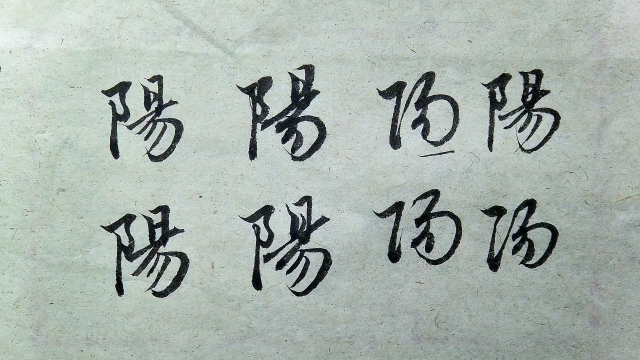 陽陽陽陽
陽陽陽陽